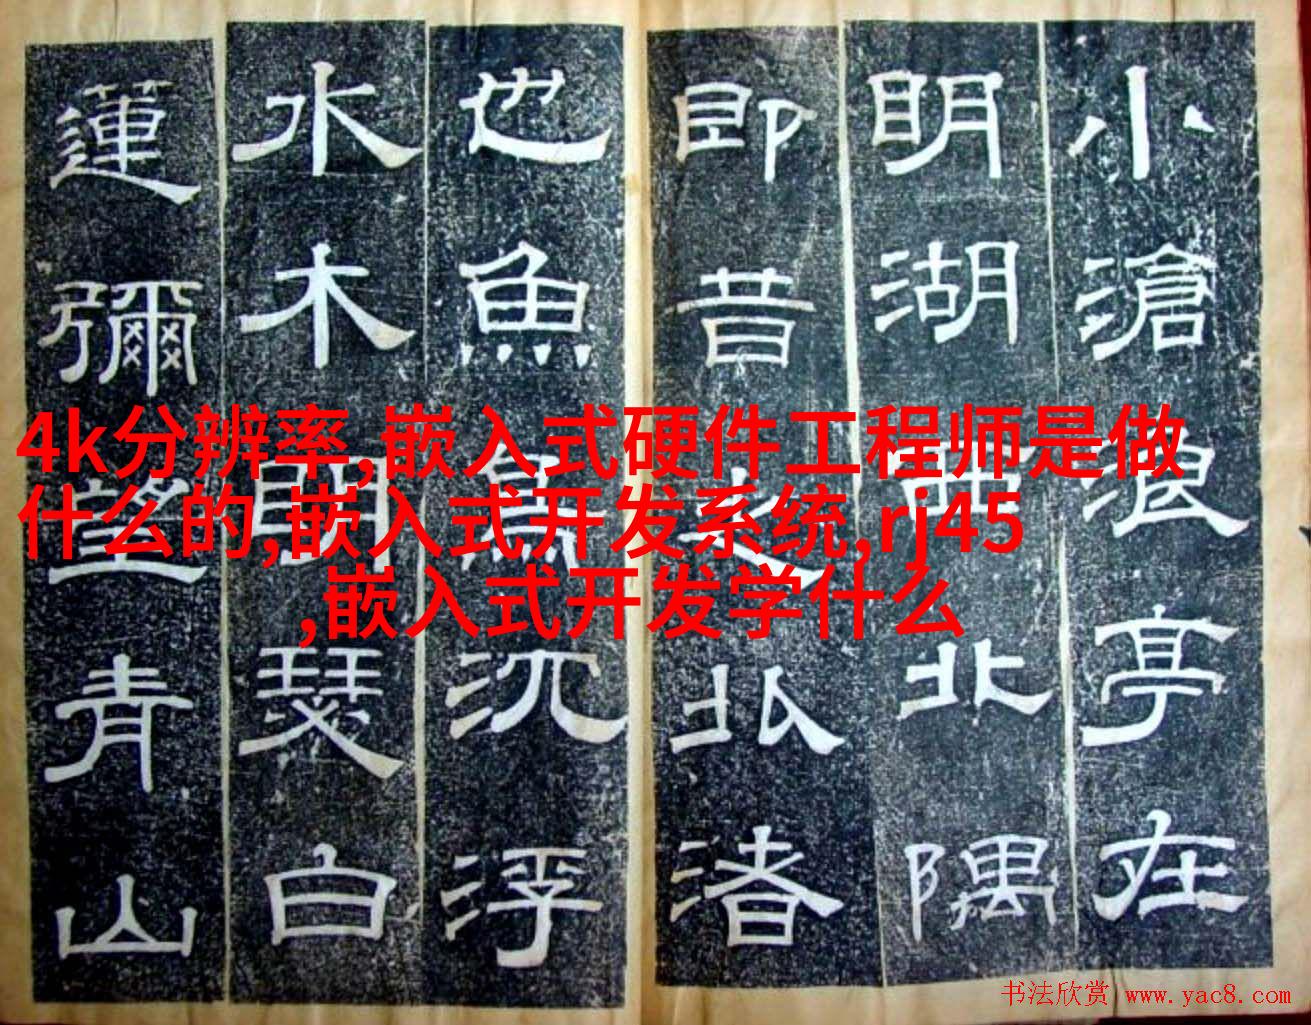 小滄浪亭在
明湖西北隅
即昔之北渚
也魚鳥沉浮
水木明瑟白
蓮彌望青山
4k分辨率,嵌入式硬件工程师是做
什么的,嵌入式开发系统,rj45
,嵌入式开发学什么
书法欣赏 www.yac8.com